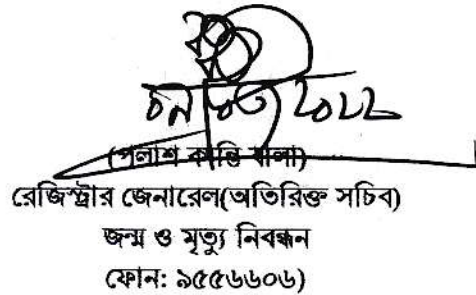 (পলাশ কান্তি বালা)
রেজিস্ট্রার জেনারেল(অতিরিক্ত সচিব)
জন্ম ও মৃত্যু নিবন্ধন
ফোন: ৯৫৫৬৬০৬)